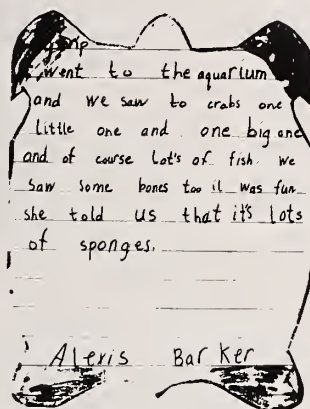 went to the aquarium
and we saw to crabs one
little one and one big one
and of course Lot's of fish we
saw some bones too it was fun
she told us that it's lots
of sponges.
Alexis Barker